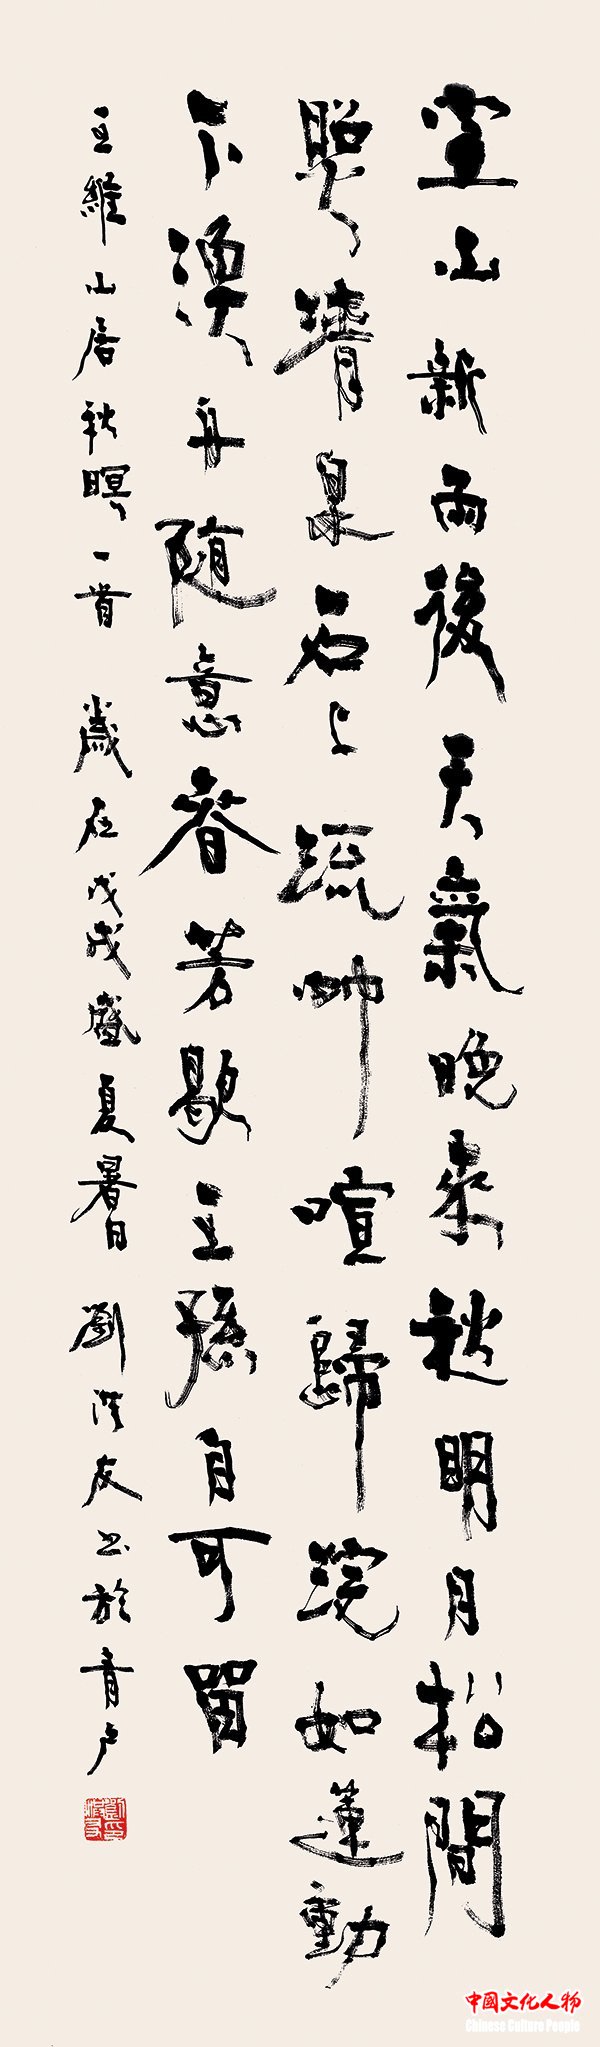 空山新雨後天氣晚來秋明月松間
照清泉石上流竹喧歸浣如蓮動
下漁舟隨意春芳歇王孫自可留
王維山居秋暝一首 歲在戊戌盛夏暑日 劉洪友书於青户
中國文化人物
Chinese Culture People